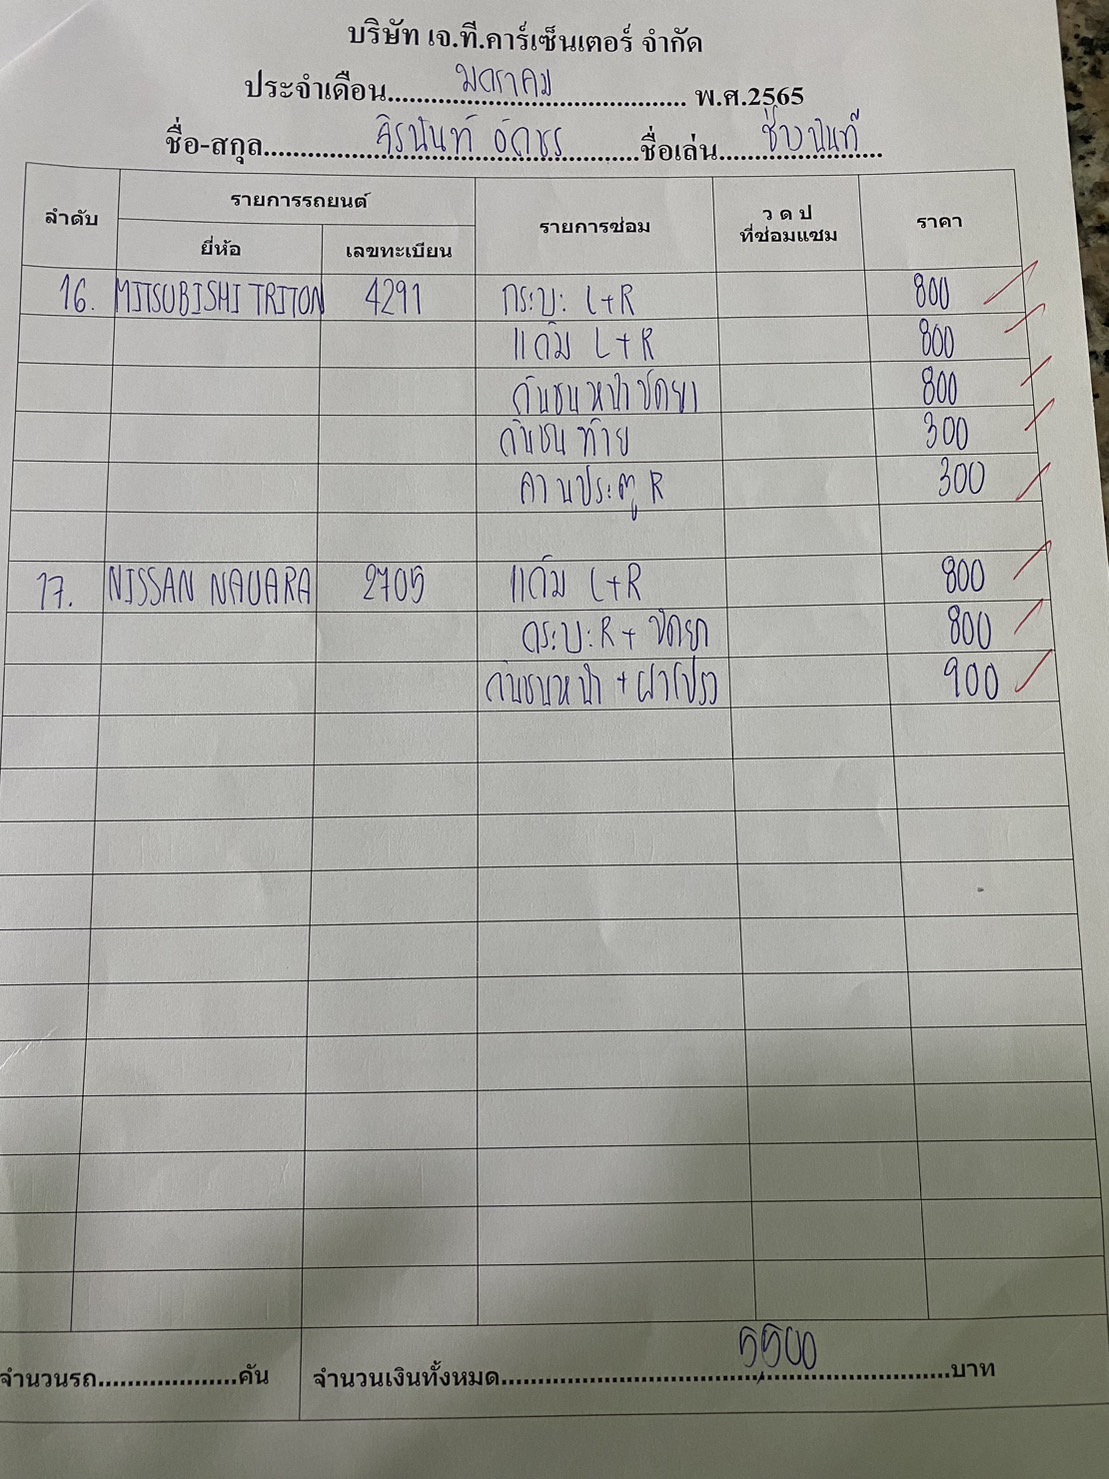 บริษัท เจ.ที.คาร์เซ็นเตอร์ จำกัด
ประจำเดือน.....มกราคม..... พ.ศ.2565
ชื่อ-สกุล.....จิรนันท์.....ชื่อเล่น.....ช่างนันท์.....
ลำดับ รายการรถยนต์ รายการซ่อม ว ด ป ที่ซ่อมแซม ราคา
ยี่ห้อ เลขทะเบียน
16. MITSUBISHI TRITON 4291 กระบะ L+R 800
แก้ม L+R 800
กันชนหน้าขัดยา 800
กันชนท้าย 300
คานประตู R 300
17. NISSAN NAVARA 2705 แก้ม L+R 800
กระบะ R + ขัดยา 800
กันชนหน้า + ฝาโปรง 900
จำนวนรถ....................คัน จำนวนเงินทั้งหมด.....5,500.....บาท